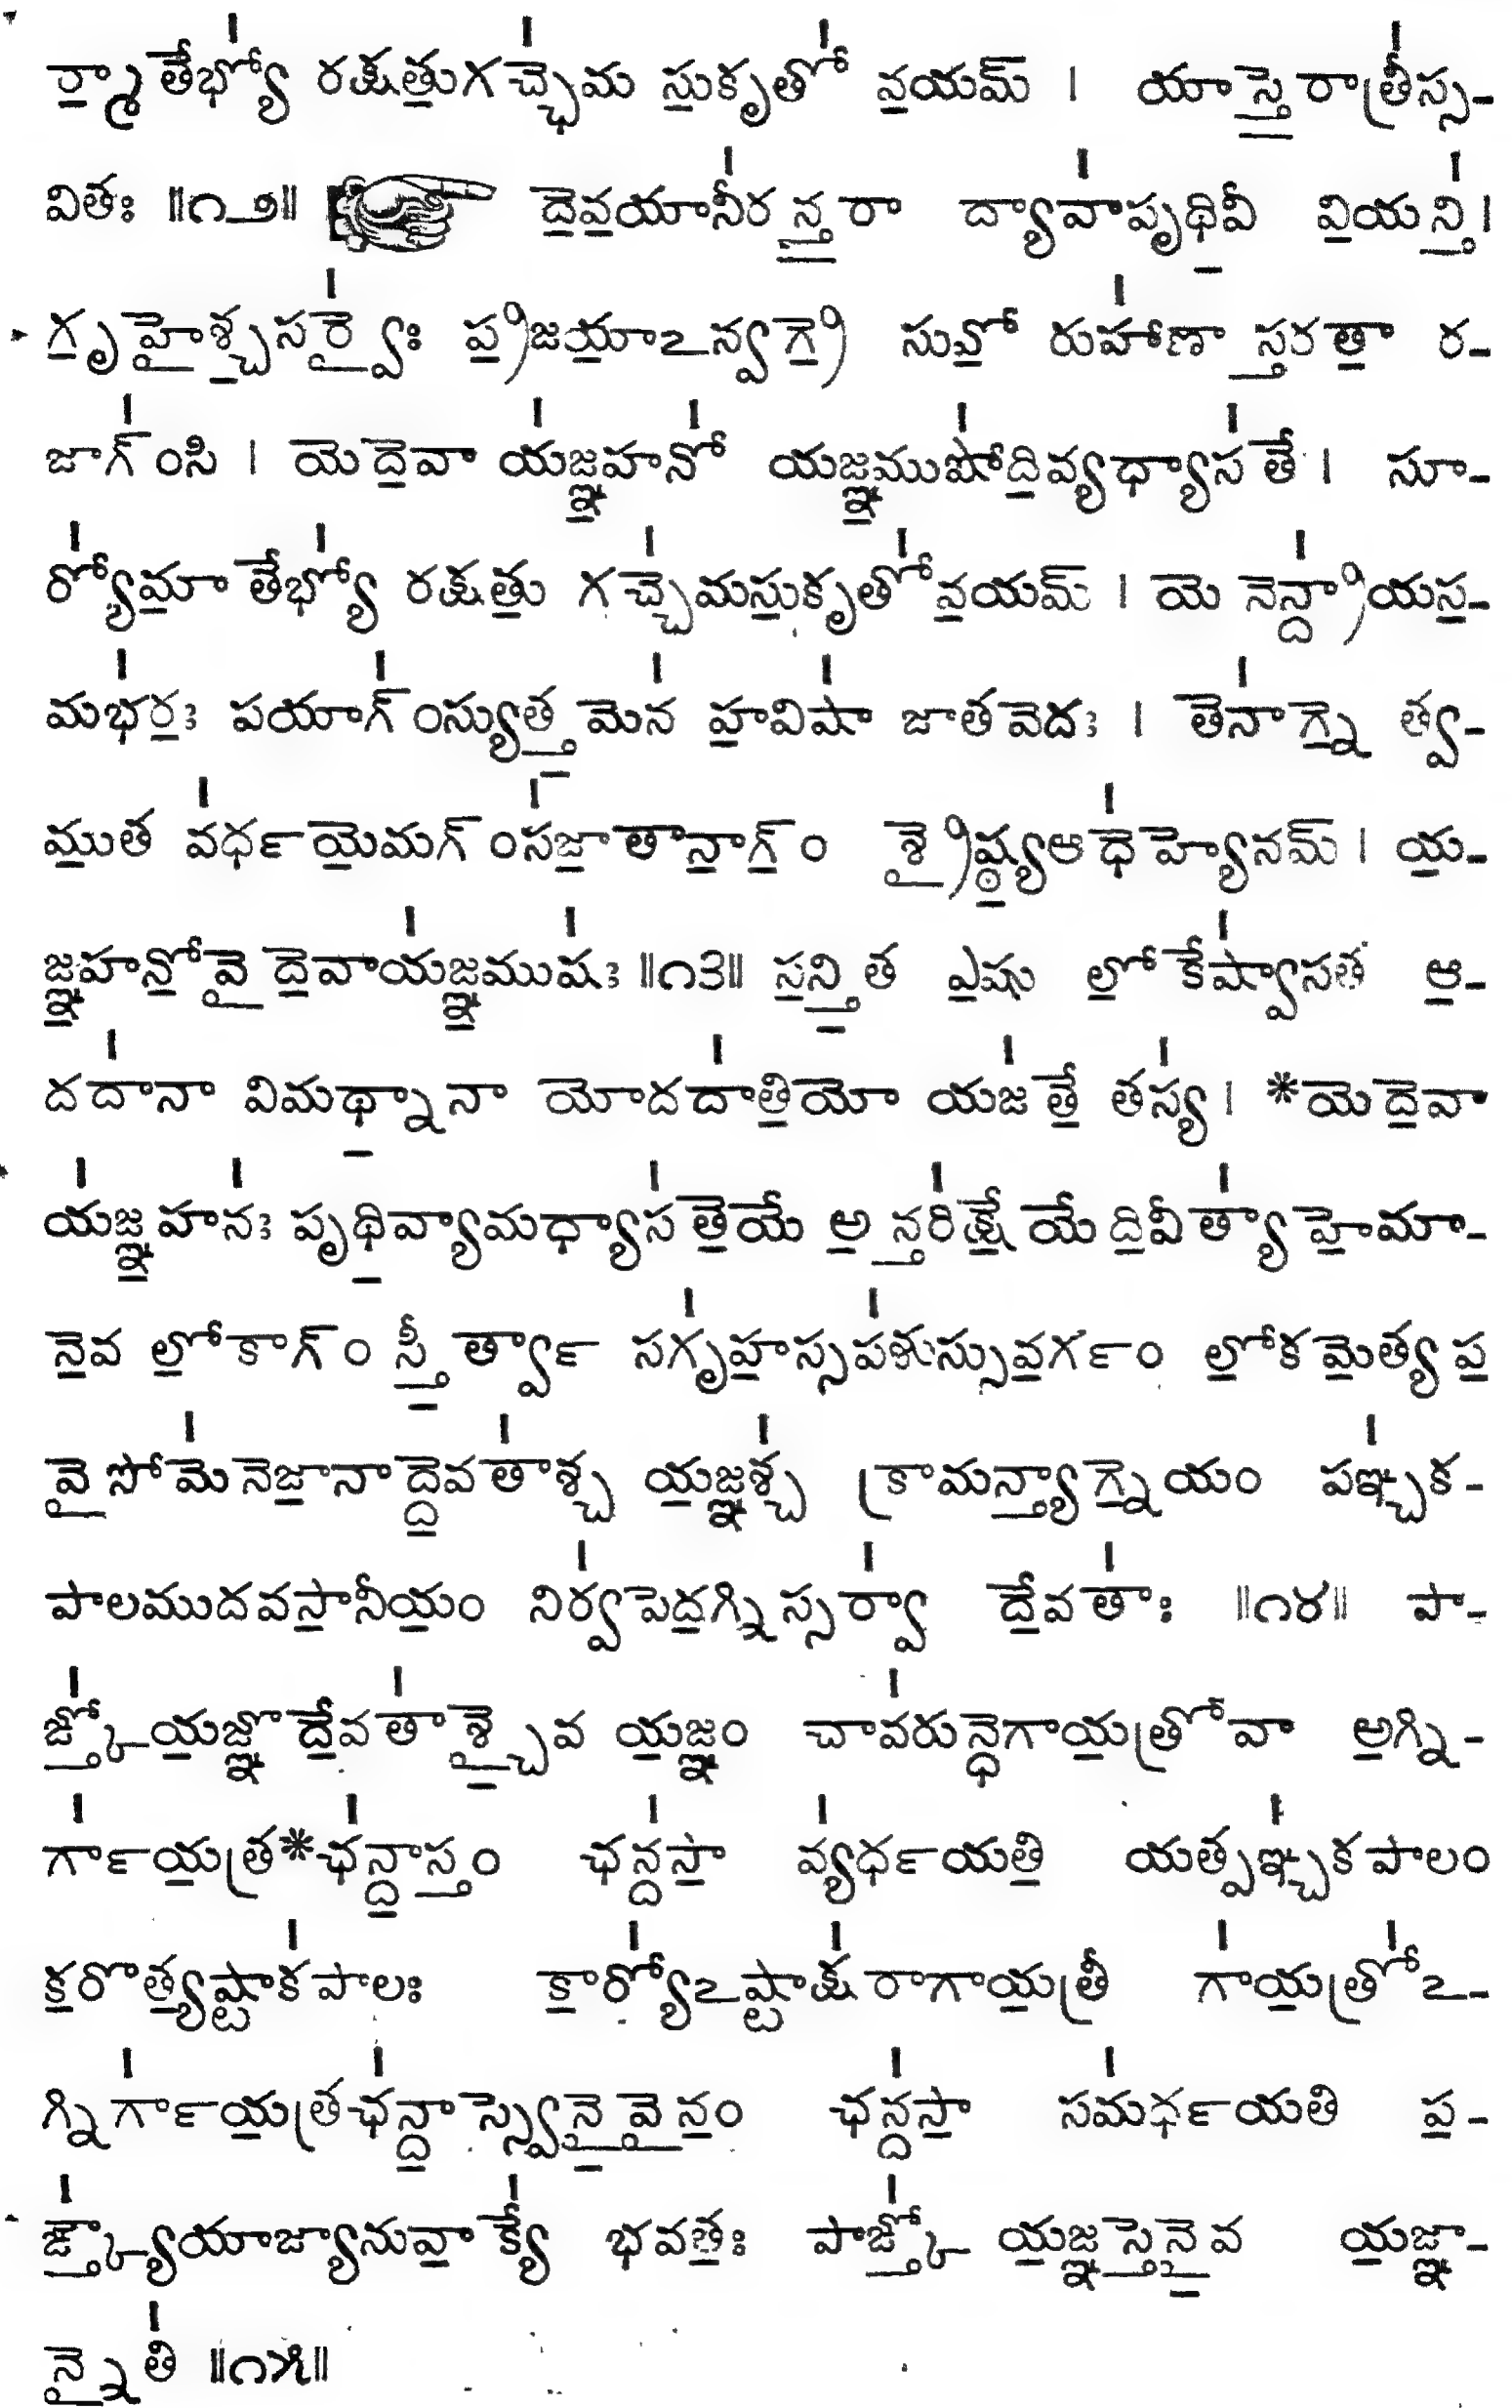 ర్మా తేభ్యో రక్షతుగచ్ఛేమ సుకృతో వయమ్ । యాస్తె రాత్రీస్స-
వితః ॥౧౨॥ దెవయానీరన్తరా ద్యావాపృథివీ వియన్తి।
గృహైశ్చసర్వైః ప్రజయాఽన్వగ్రె సువో రుహాణా స్తరతా ర-
జాగ్ంసి । యెదెవా యజ్ఞహనో యజ్ఞముషోదివ్యధ్యాసతే । సూ-
ర్యోమా తేభ్యో రక్షతు గచ్ఛేమసుకృతోవయమ్ । యెనెన్ద్రాయస-
మభరః పయాగ్ంస్యుత్తమెన హవిషా జాతవెదః । తెనాగ్నె త్వ-
ముత వర్ధయెమగ్ంసజాతానాగ్ం శ్రైష్ఠ్యఆధెహ్యెనమ్ । య-
జ్ఞహనోవై దెవాయజ్ఞముషః ॥౧౩॥ సన్తిత ఎషు లోకేష్వాసత ఆ-
దదానా విమథ్నానా యోదదాతియో యజతే తస్య । *యెదెవా
యజ్ఞహనః పృథివ్యామధ్యాసతెయే అన్తరిక్షేయే దివీత్యాహెమా-
నెవ లోకాగ్ం స్తీర్త్వా సగృహస్సపశుస్సువర్గం లోకమెత్యప
వై సోమెనెజానాద్దెవతాశ్చ యజ్ఞశ్చ క్రామన్త్యాగ్నెయం పఞ్చక-
పాలముదవసానీయం నిర్వపెదగ్నిస్సర్వా దేవతాః ॥౧౪॥ పా-
ఙ్క్తోయజ్ఞొ దేవతాశ్చైవ యజ్ఞం చావరున్ధెగాయత్రోవా అగ్ని-
ర్గాయత్ర*ఛన్దాస్తం ఛన్దసా వ్యర్ధయతి యత్పఞ్చకపాలం
కరొత్యష్టాకపాలః కార్యోఽష్టాక్షరాగాయత్రీ గాయత్రోఽ-
గ్నిర్గాయత్రఛన్దాస్స్వెనైవైనం ఛన్దసా సమర్ధయతి ప-
ఙ్క్త్యౌయాజ్యానువాక్యే భవతః పాఙ్క్తో యజ్ఞస్తెనైవ యజ్ఞా-
న్నైతి ॥౧౫॥